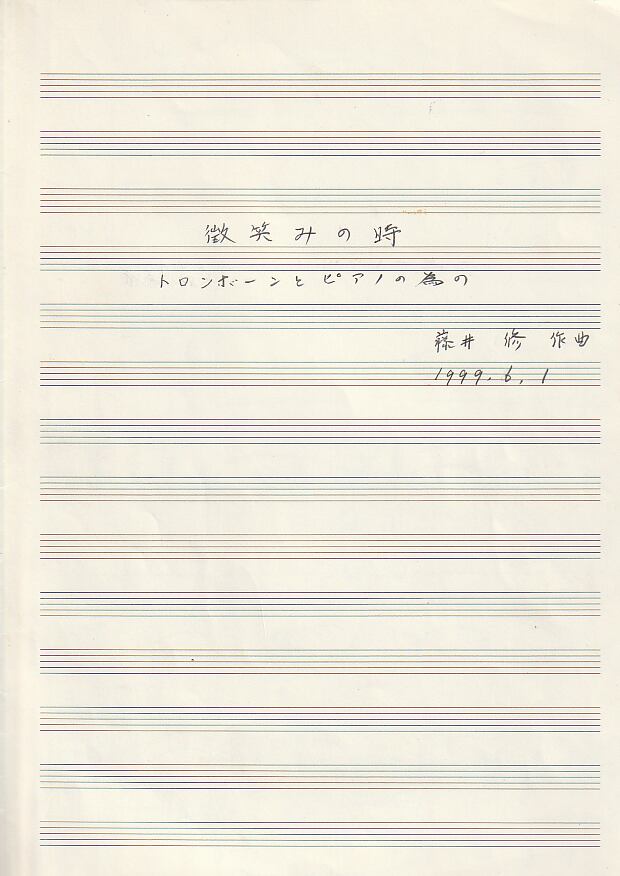 微笑みの時
トロンボーンとピアノの為の
藤井 修 作曲
1999.6.1